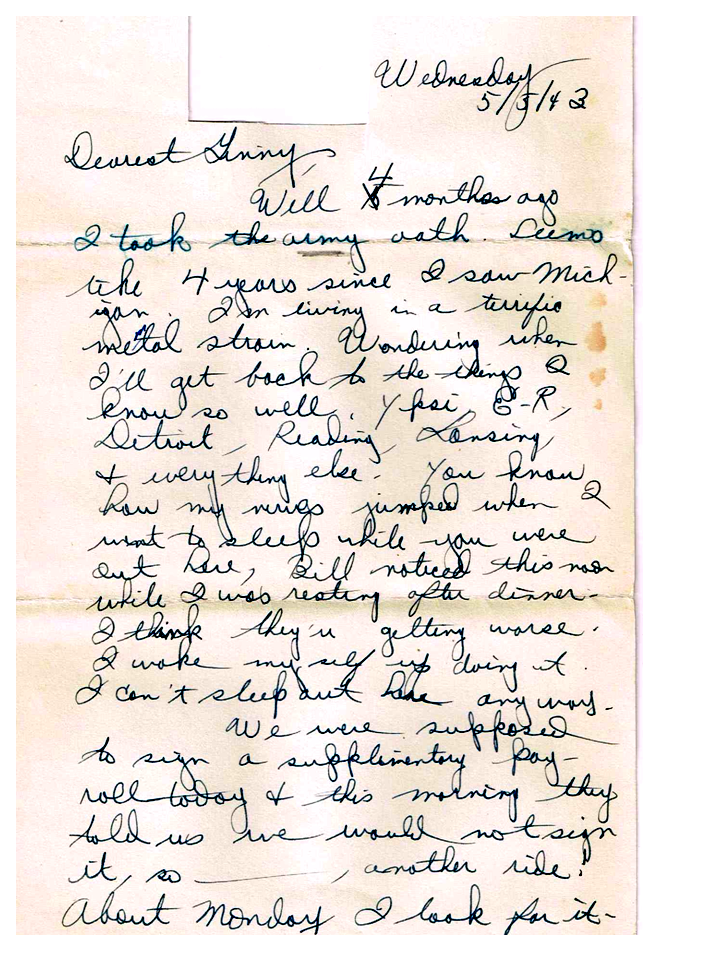 Wednesday
5/5/43
Dearest Ginny,
Well 4 months ago
I took the army oath. Seems
like 4 years since I saw Mich-
igan. I'm living in a terrific
metal strain. Wondering when
I'll get back to the things I
know so well. Ypsi, E-R,
Detroit, Reading, Lansing,
& everything else. You know
how my nerves jumped when I
went to sleep while you were
out here, Bill noticed this noon
while I was resting after dinner.
I think they're getting worse.
I woke my self up doing it.
I can't sleep out here any way.
We were supposed
to sign a supplimentary pay-
roll today & this morning they
told us we would not sign
it, so ______, another ride!
About Monday I look for it-